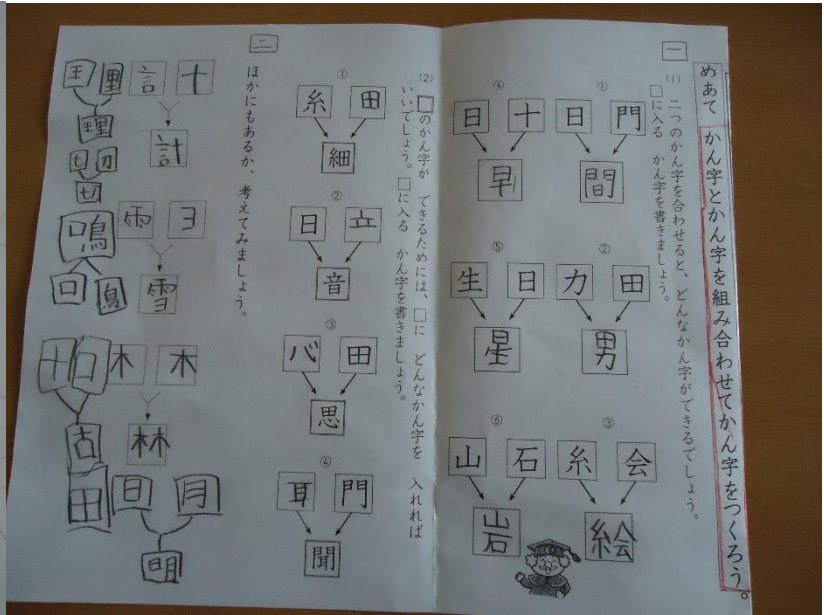 めあて かん字とかん字を組み合わせてかん字をつくろう。
一
(1) 二つのかん字を合わせると、どんなかん字ができるでしょう。
□に入る かん字を書きましょう。
① 門 日 間
② 田 力 男
③ 会 糸 絵
④ 十 日 早
⑤ 日 生 星
⑥ 石 山 岩
(2) □のかん字が できるためには、□に どんなかん字を 入れれば
いいでしょう。□に入る かん字を書きましょう。
① 田 糸 細
② 立 日 音
③ 田 心 思
④ 門 耳 聞
二
ほかにもあるか、考えてみましょう。
十 言 計
ヨ 雨 雪
木 木 林
月 日 明
里 王 理
刀 七 切
鳴 鳥 口
口 十 古
田